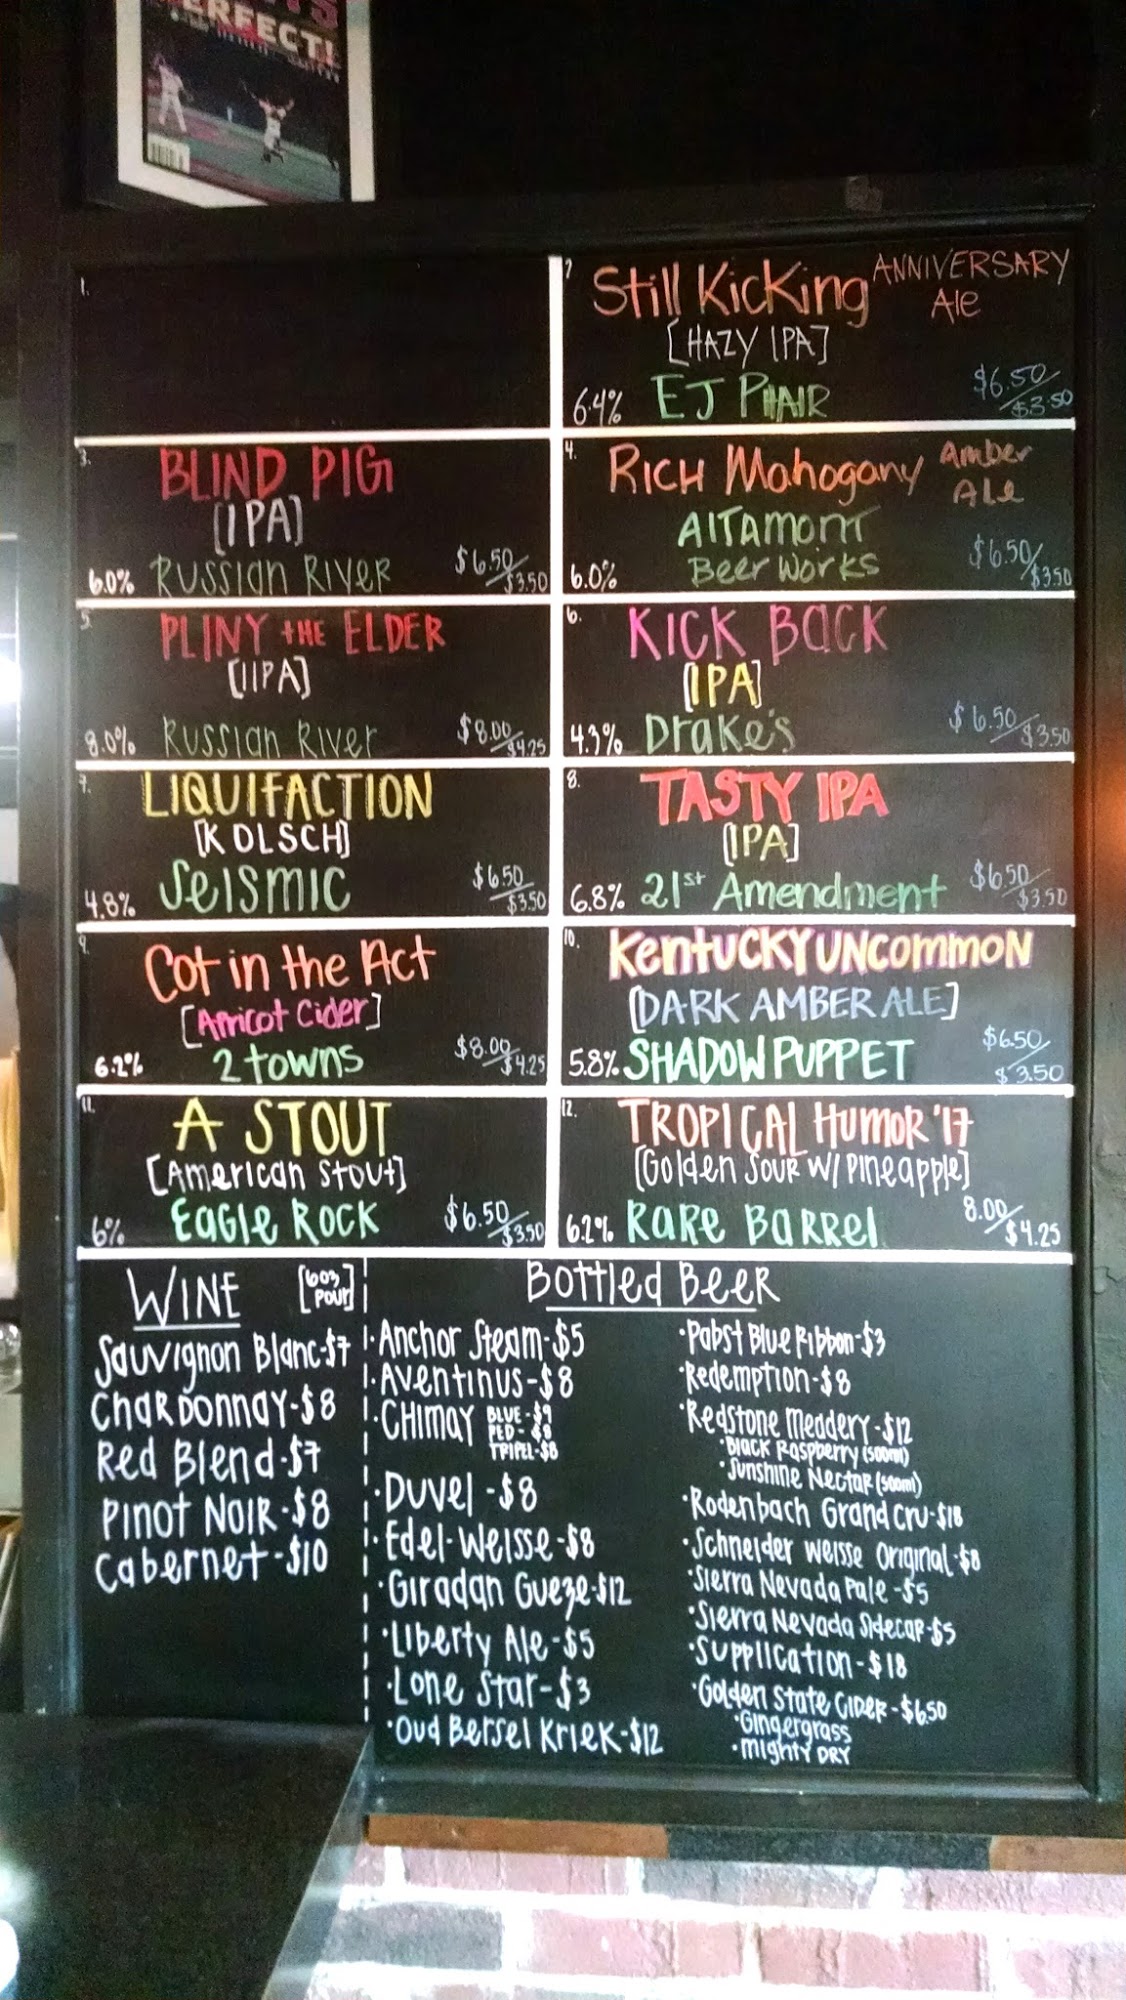 ERFECT!
1.
2
Still Kicking ANNIVERSARY Ale
[HAZY IPA]
6.4% EJ PHAIR $6.50/$3.50
3.
BLIND PIG
[IPA]
6.0% Russian River $6.50/$3.50
4.
Rich Mahogany Amber Ale
Altamont
Beer Works
6.0% $6.50/$3.50
5.
PLINY the ELDER
[IIPA]
8.0% Russian River $8.00/$4.25
6.
KICK BACK
[IPA]
4.3% Drake's $6.50/$3.50
7.
LIQUIFACTION
[KOLSCH]
4.8% Seismic $6.50/$3.50
8.
TASTY IPA
[IPA]
6.8% 21st Amendment $6.50/$3.50
9.
Cot in the Act
[Apricot Cider]
6.2% 2 towns $8.00/$4.25
10.
Kentucky Uncommon
[DARK AMBER ALE]
5.8% SHADOW PUPPET $6.50/$3.50
11.
A STOUT
[American Stout]
6% Eagle Rock $6.50/$3.50
12.
TROPICAL Humor '17
[Golden Sour w/ Pineapple]
6.2% Rare Barrel 8.00/$4.25
WINE [6oz Pour]
Sauvignon Blanc-$7
Chardonnay-$8
Red Blend-$7
Pinot Noir-$8
Cabernet-$10
Bottled Beer
·Anchor Steam-$5
·Aventinus-$8
·CHIMAY BLUE-$9
RED-$8
TRIPEL-$8
·Duvel-$8
·Edel-Weisse-$8
·Giradan Gueze-$12
·Liberty Ale-$5
·Lone Star-$3
·Oud Bersel Kriek-$12
·Pabst Blue Ribbon-$3
·Redemption-$8
·Redstone Meadery-$12
·Black Raspberry (500ml)
·Sunshine Nectar (500ml)
·Rodenbach Grand Cru-$18
·Schneider Weisse Original-$8
·Sierra Nevada Pale-$5
·Sierra Nevada Sidecar-$5
·Supplication-$18
·Golden State Cider-$6.50
·Gingergrass
·Mighty Dry